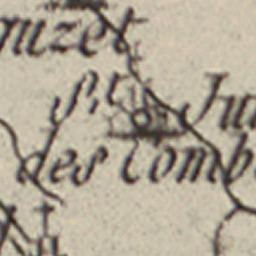 nizet
St. Ju
des Comb